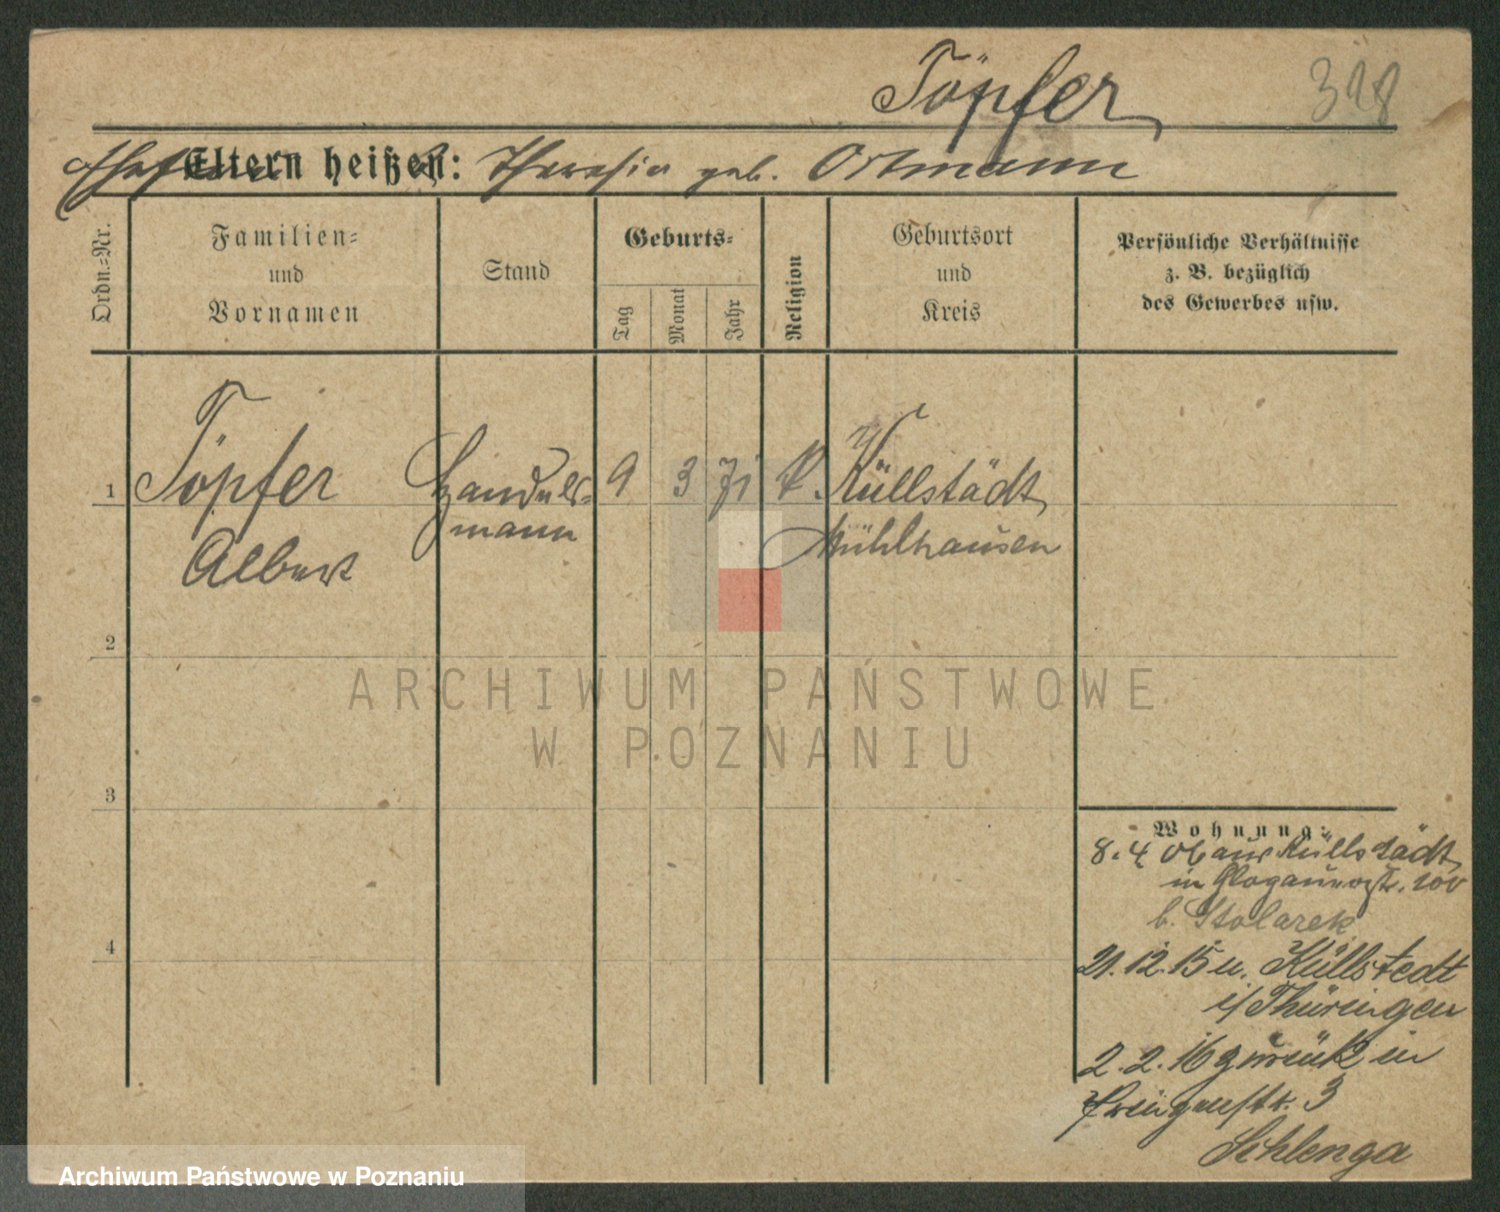 Töpfer
318
Eltern heißen: Theresia geb. Ortmann
Ordn.-Nr.
Familien-
und
Vornamen
Stand
Geburts-
Tag
Monat
Jahr
Religion
Geburtsort
und
Kreis
Persönliche Verhältnisse
z. B. bezüglich
des Gewerbes usw.
1 Töpfer Handels- 9 3 71 k. Küllstädt
Albert mann Mühlhausen
2
3
4
Wohnung:
8. 4 06 aus Küllstädt
in Glogauerstr. 100
b. Stolarek
21. 12. 15 n. Küllstedt
i/Thüringen
2. 2. 16 zurück in
Prinzenstr. 3
Schlenga
ARCHIWUM PAŃSTWOWE
W POZNANIU
Archiwum Państwowe w Poznaniu